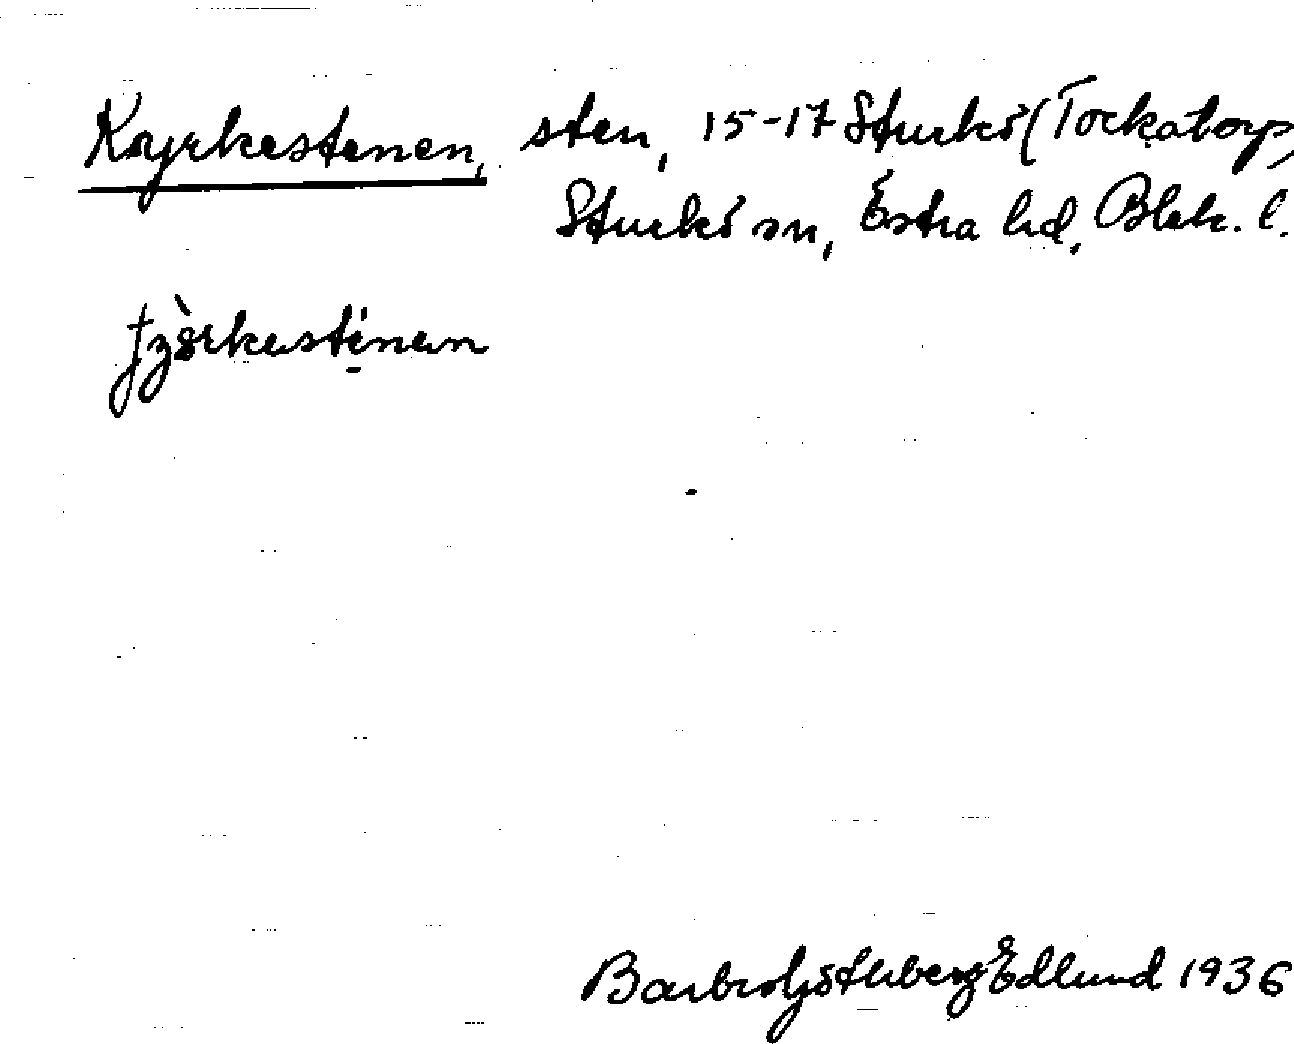 Kyrkestenen, sten, 15-17 Sturkö (Tockatorp,
Sturkö sn, Östra hd, Blek. l.
Barbro Götherberg Edlund 1936